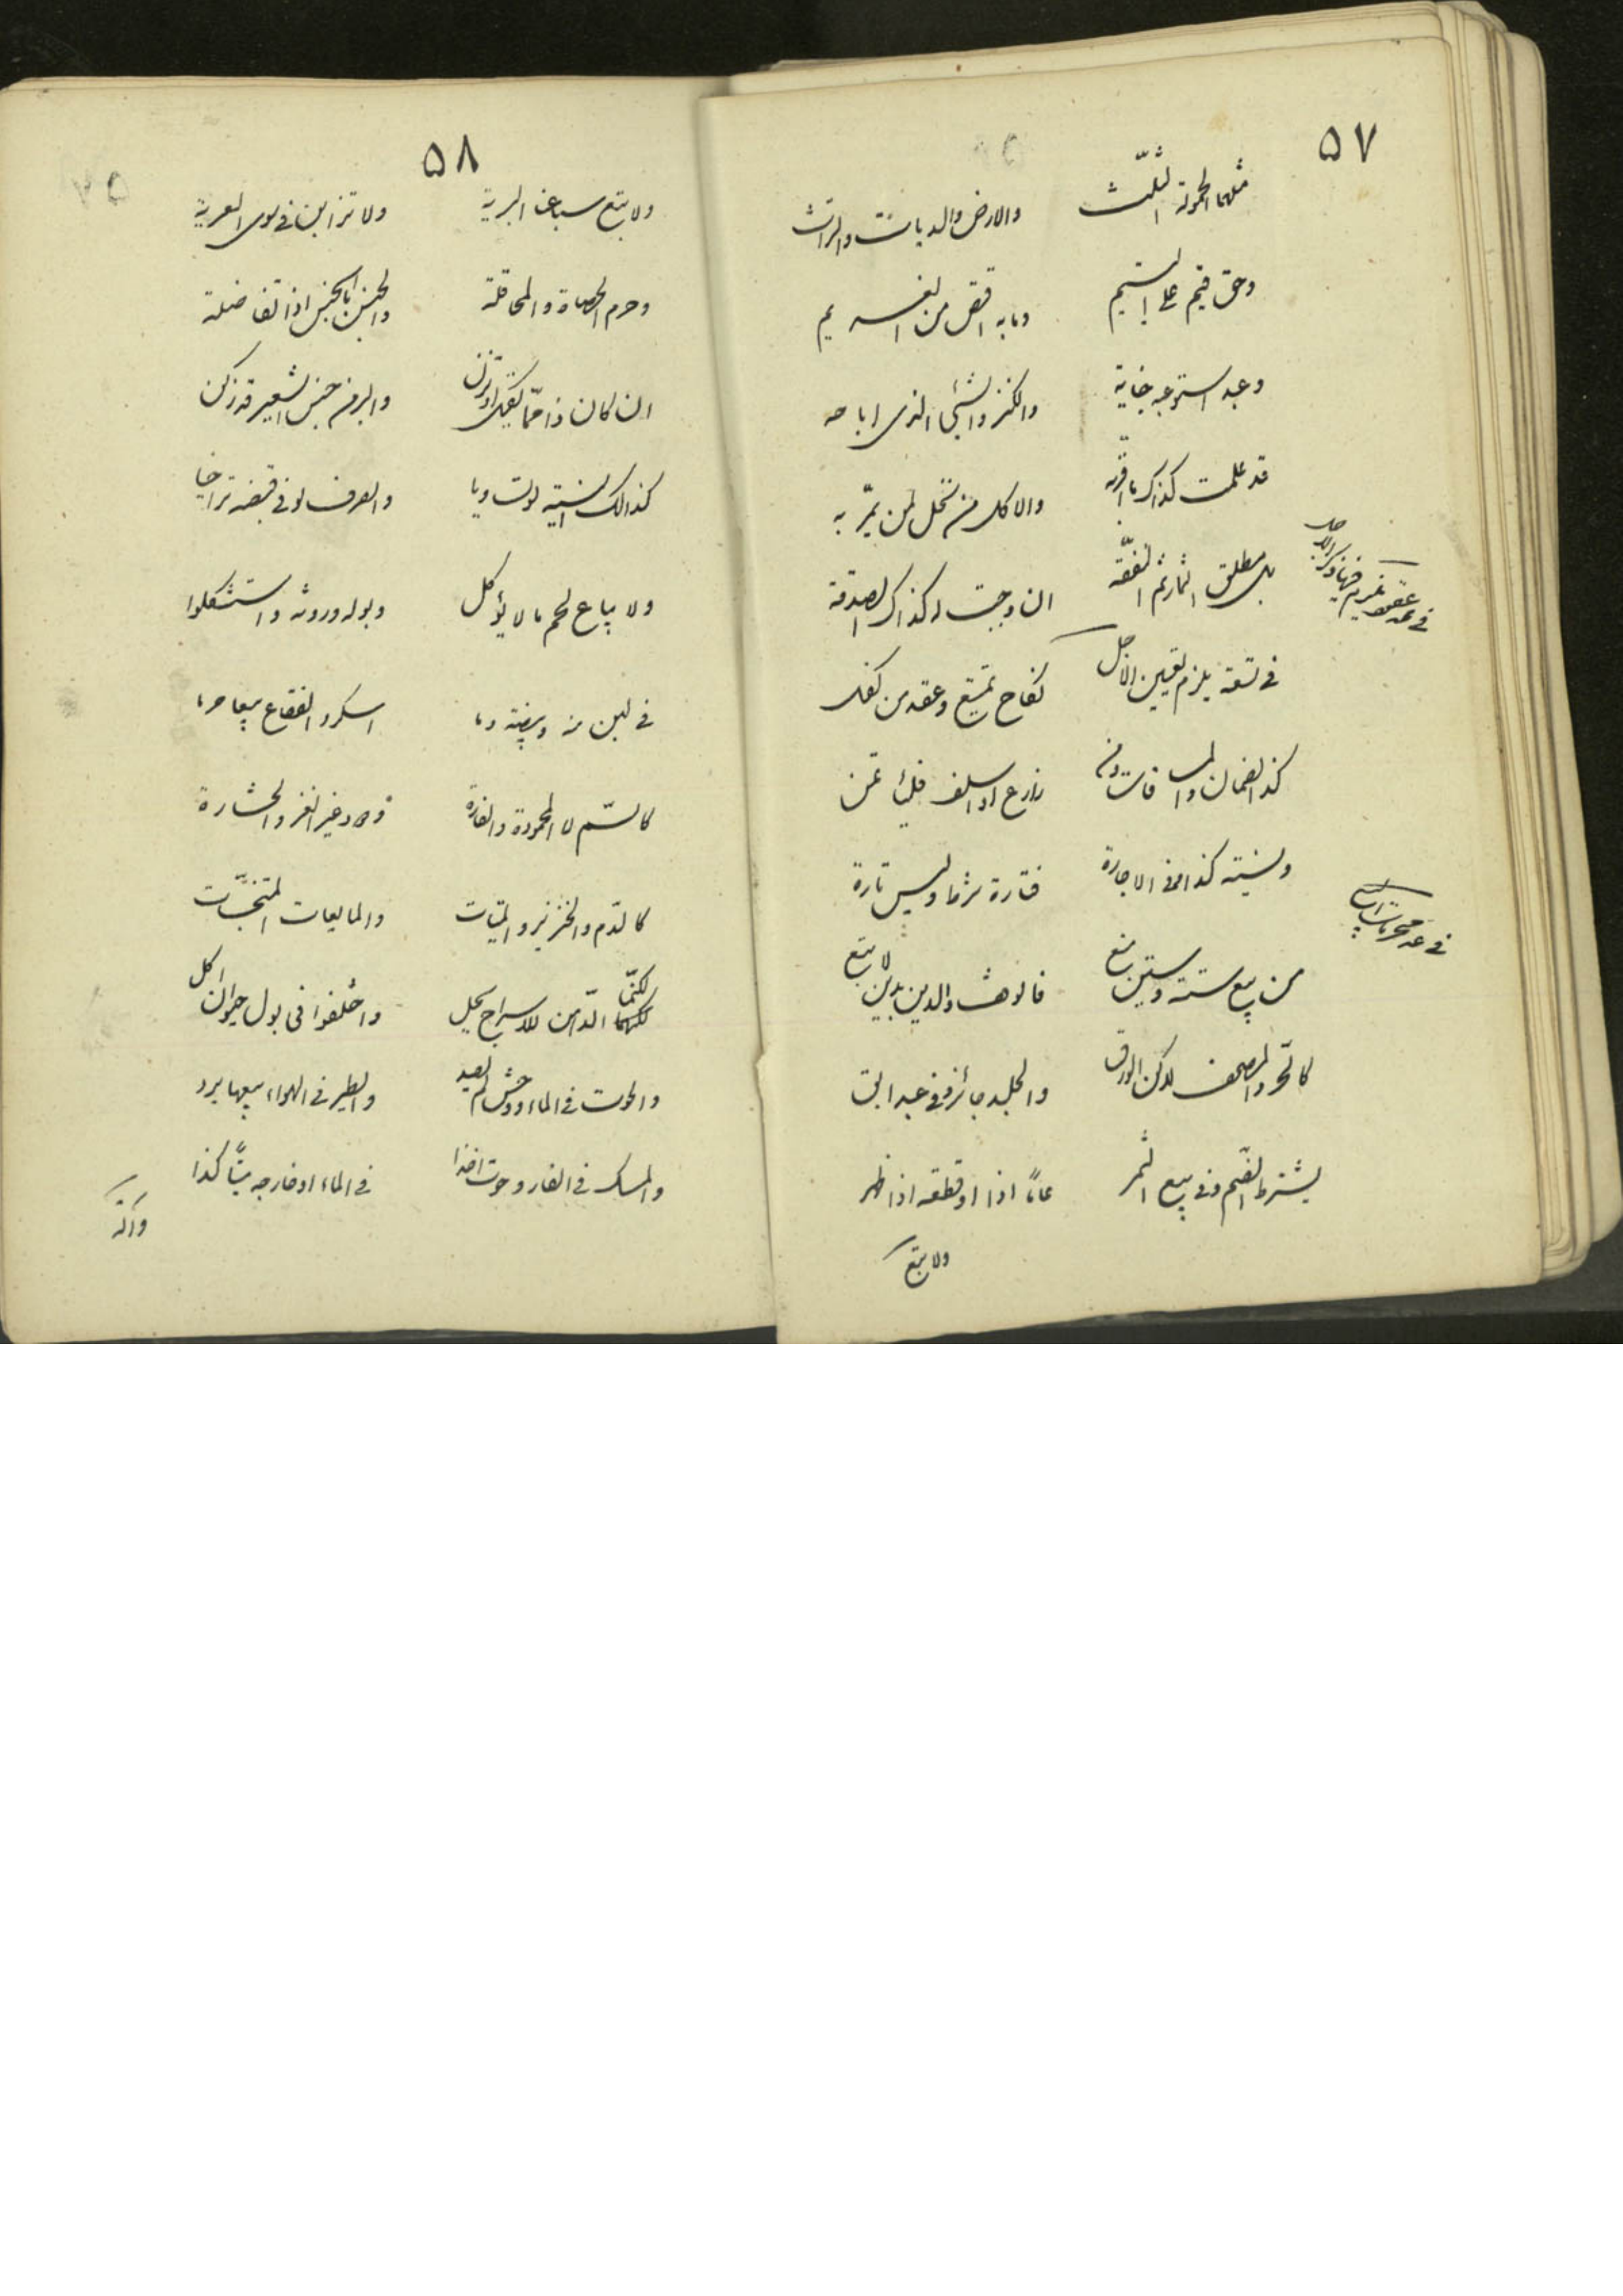 ٥٧
مثلها الحمولة الثلث والارض والديات والتراث
وحق قيم على اليتيم وما به اقتص من الغريم
وعبد استوعبه جناية والكنز والشيء الذي اباحه
قد علمت كذاك مارقه والاكل من نخل لمن يمر به
بل مطلق الثمار ثم النفقه ان وجبت له كذاك الصدقة
في عد عقود غير فيها ذكر الاجل
في تسعة يلزم تعيين الاجل نكاح تمتع وعقد من كفل
كذا الضمان والمساقات ومن زارع او اسلف فليأتمن
ونسيئة كذا وفي الاجارة فتارة شرطا وليس تارة
في عد محرمات
من بيع ستة وستين منع فالوقف والدين بدين لا تبع
كالحر والمصحف لكن الورق والجلد جائز وفي عبد ابق
يشترط الضم وفي بيع الثمر عاما اذا او قطعه اذا ظهر
ولا تبع
٥٨
ولا تبع سباع البرية ولا تزابن في سوى العرية
وحرم الحصاة والمحاقلة والجنس بالجنس اذا تفاضلة
ان كان ذا مما يكيل او يزن والبر من جنس الشعير قد زكن
كذالك النسيئة لو تساويا والصرف لو في قبضه تراخيا
ولا يباع لحم ما لا يؤكل وبوله وروثه واستشكلوا
في لبن منه وبيضة وما اسكر والفقاع بيعا حرما
كالسم لا المحمودة والفارة ودود غير القز والحشارة
كالدم والخنزير والميتات والمايعات المتنجسات
لكنما الدهن للاسراج يحل واختلفوا في بول حيوان اكل
والحوت في الماء ووحش لم يصد والطير في الهواء بيعها يرد
والمسك في الفار وحوت اخذا في الماء او خارجه ميتا كذا
وآلة